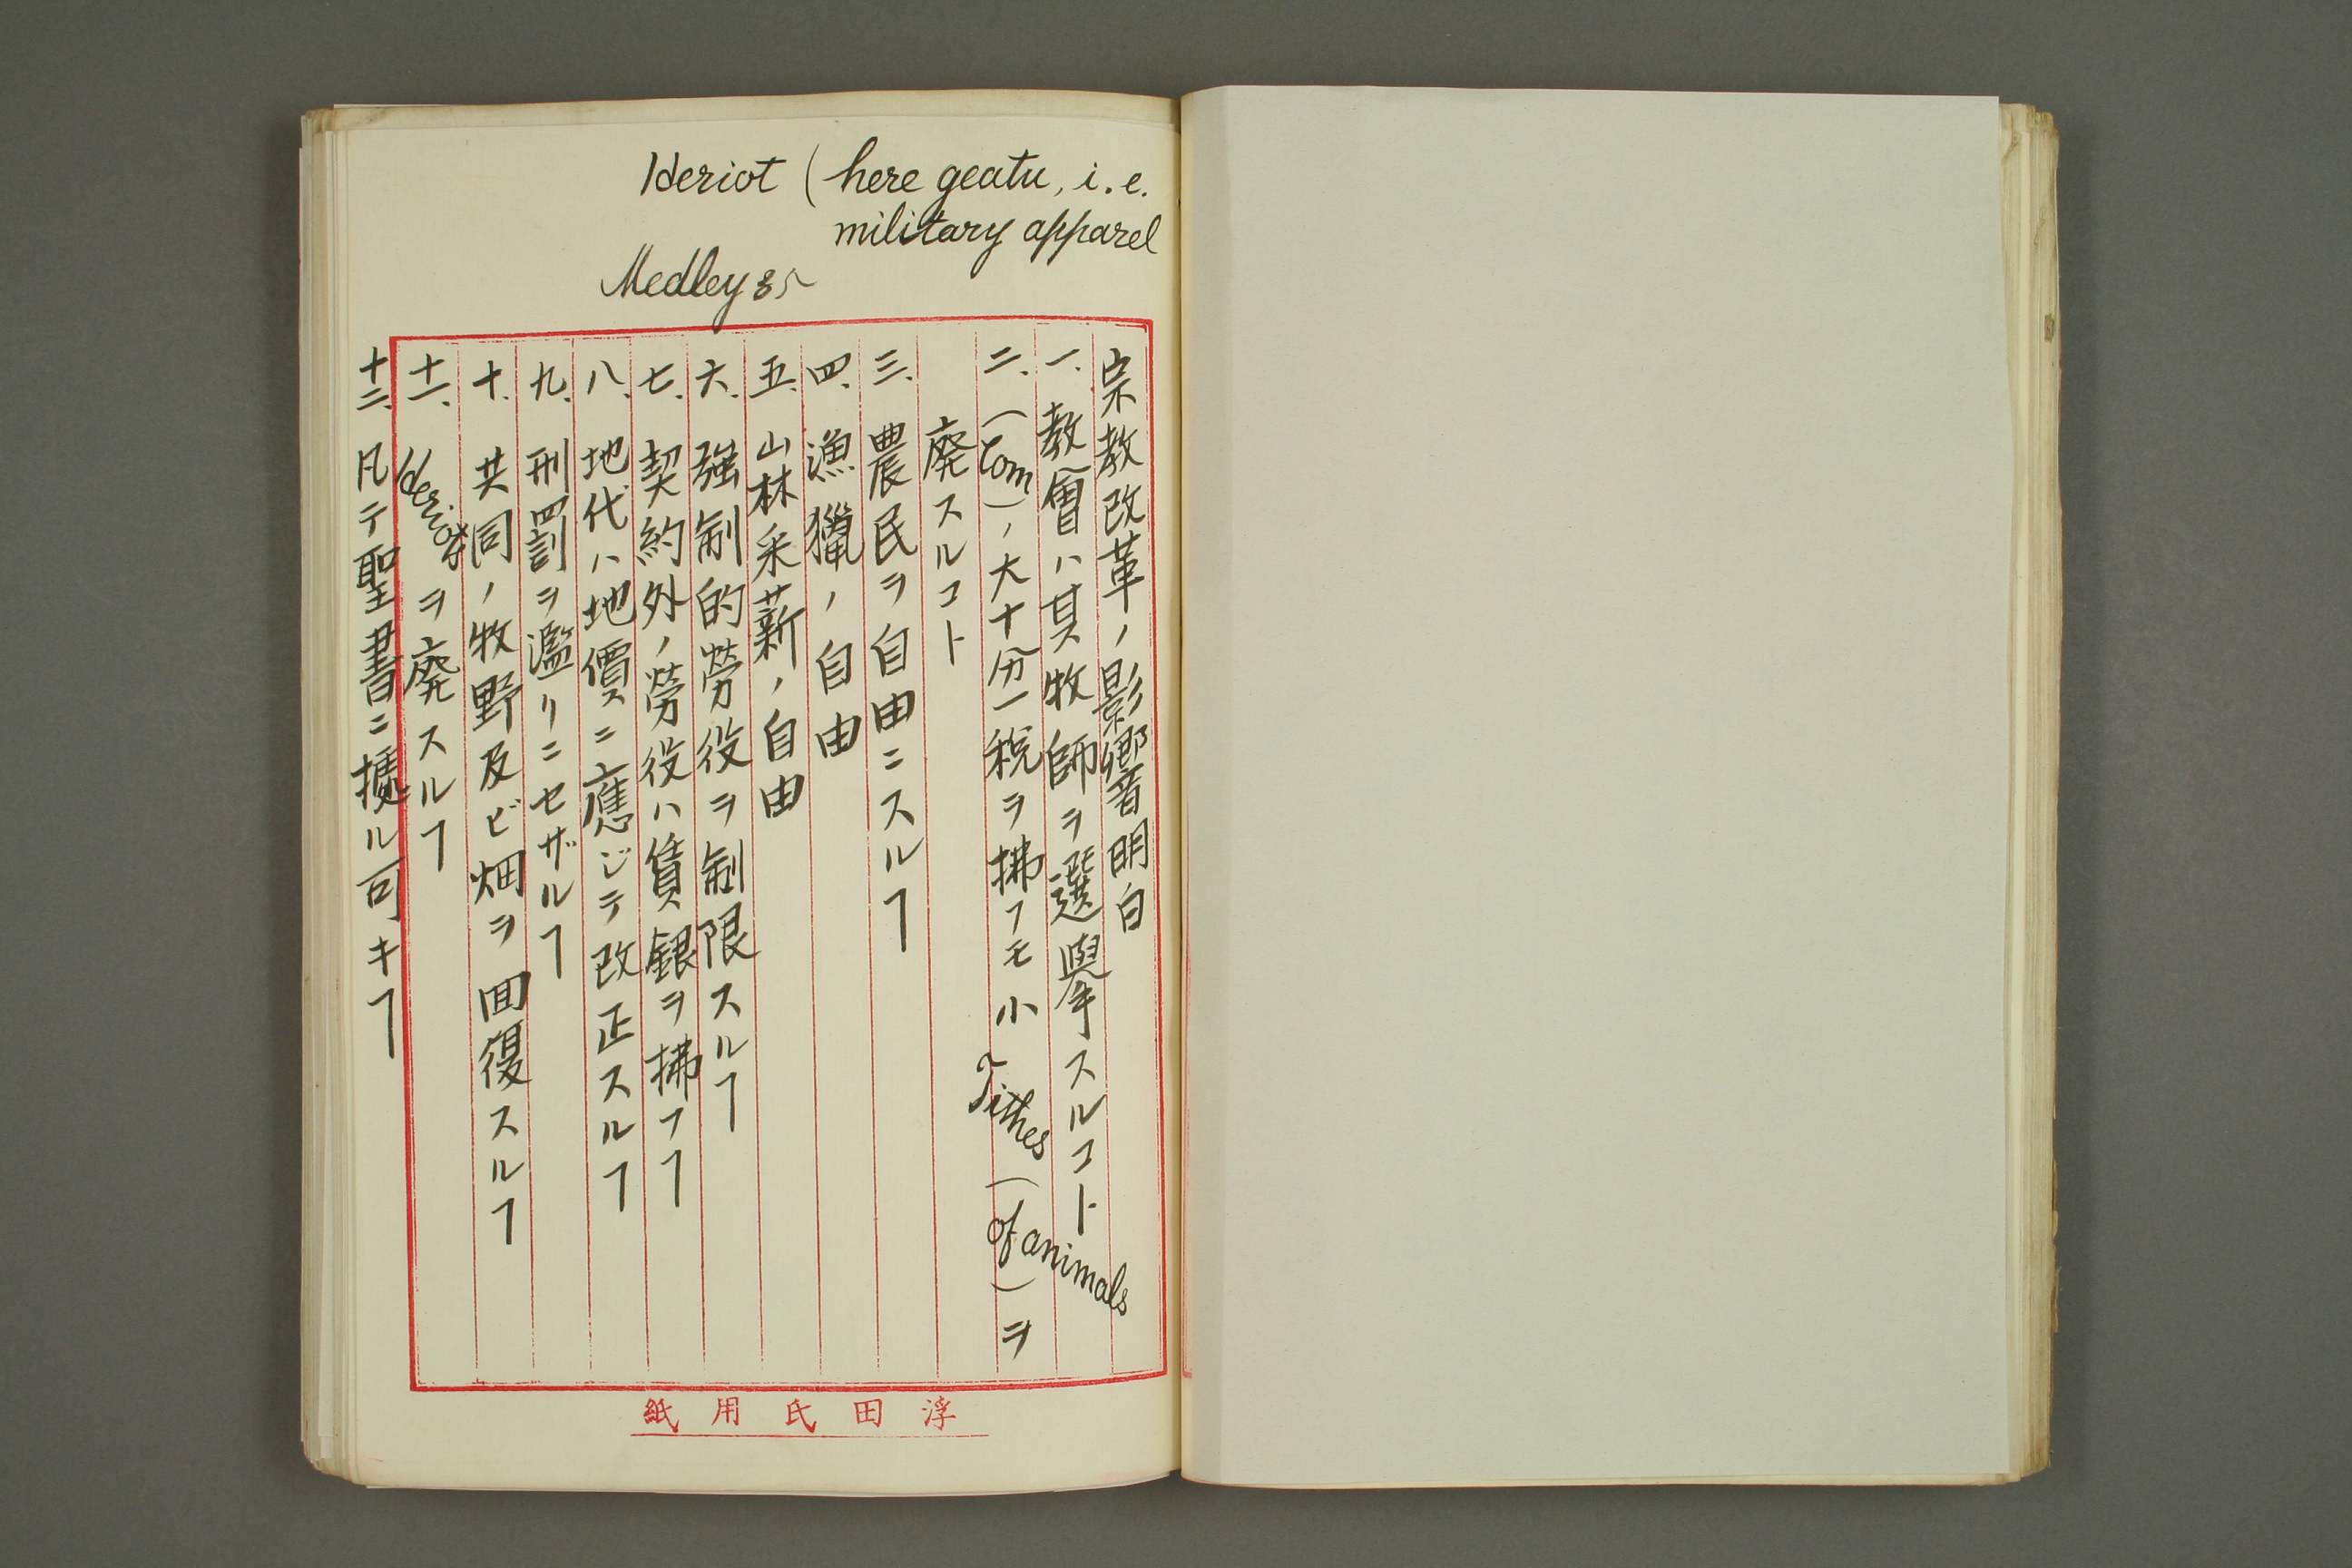 Heriot (here geatu, i.e.
military apparel
Medley ヨリ
宗教改革ノ影響明白
一、教會ハ其牧師ヲ選擧スルコト
二、(Com)、大十分一税ヲ拂フモ小Tithes(of animals)ヲ
廃スルコト
三、農民ヲ自由ニスルヿ
四、漁獵ノ自由
五、山林采薪ノ自由
六、強制的勞役ヲ制限スルヿ
七、契約外ノ勞役ハ賃銀ヲ拂フヿ
八、地代ハ地價ニ應ジテ改正スルヿ
九、刑罰ヲ濫リニセザルヿ
十、共同ノ牧野及ビ畑ヲ囬復スルヿ
十一、Heriotヲ廃スルヿ
十二、凡テ聖書ニ據ル可キヿ
浮田氏用紙